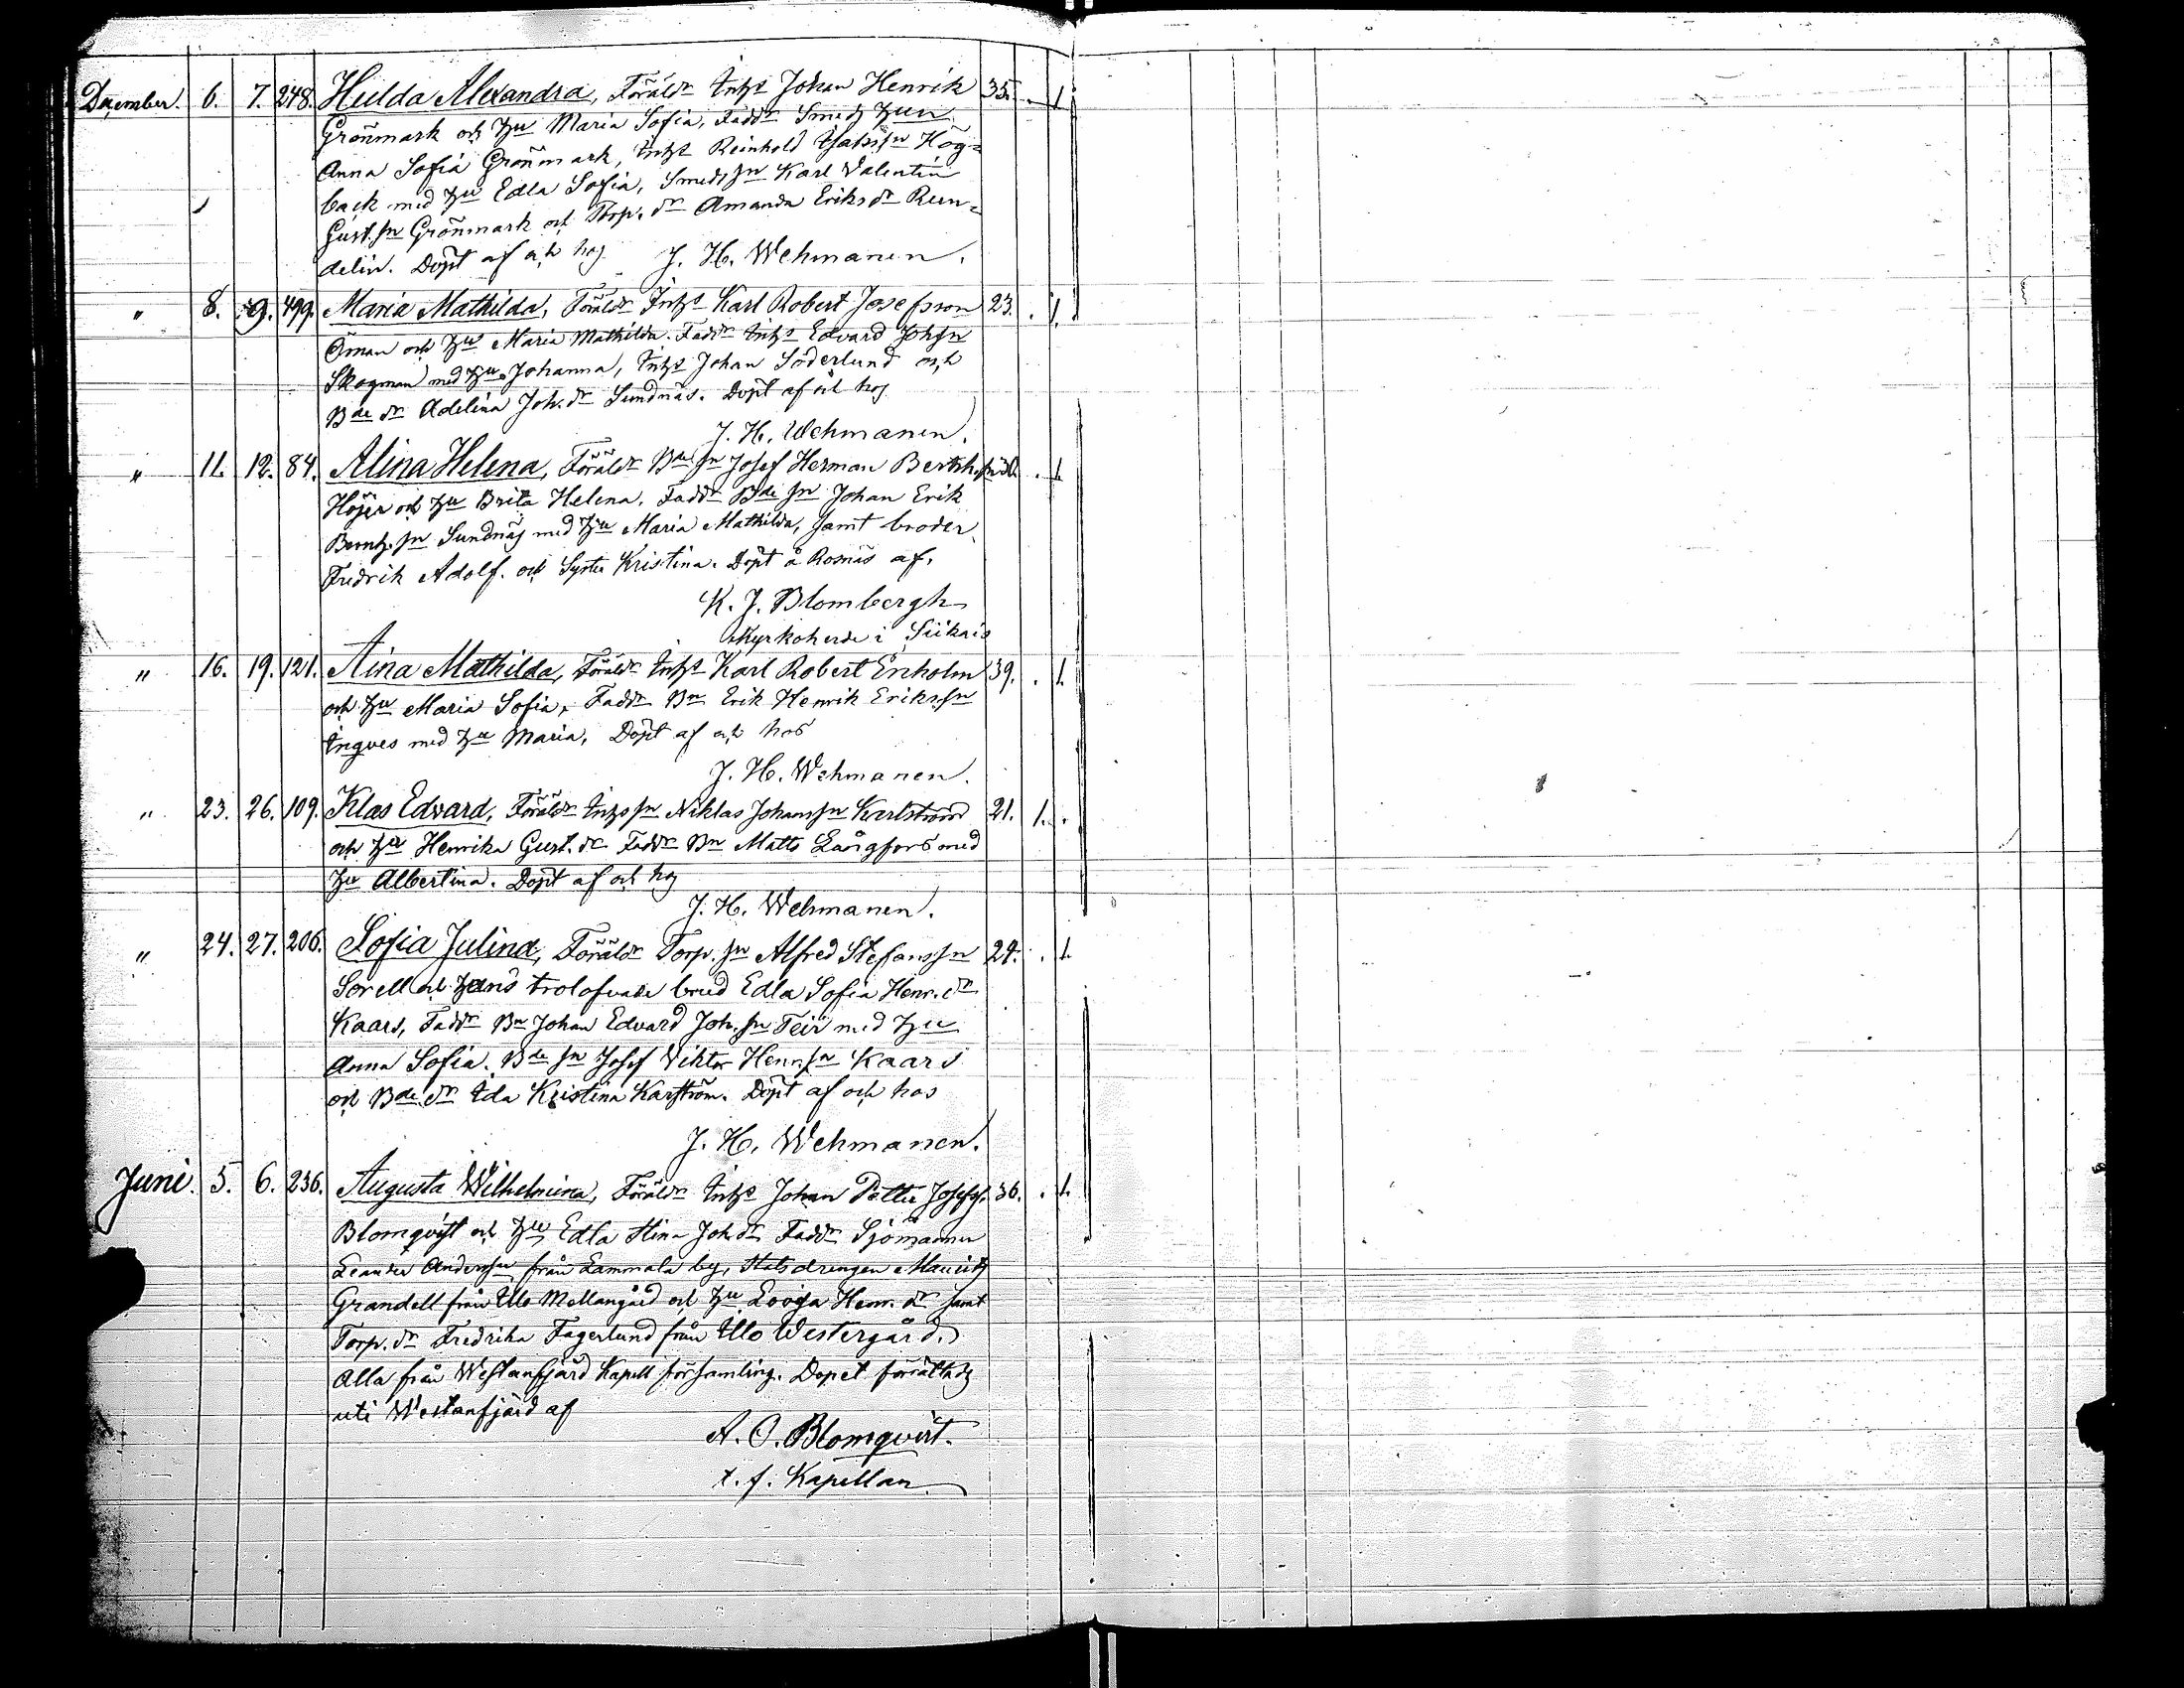 December. 6. 7. 248. Hulda Alexandra, Föräldr Inhs Johan Henrik 35. . 1.
Grönmark och Hu Maria Sofia, Faddr Smeds Hun
Anna Sofia Grönmark, Inhs Reinhold Isaks sn Hög=
back med Hu Edla Sofia, Smeds sn Karl Valentin
Gust. sn Grönmark och Torp. dr Amanda Eriks dr Run=
delin. Döpt af och hos J. H. Wehmanen.
" 8. 9. 499. Maria Mathilda, Föräldr Inhs Karl Robert Josefsson 23. . 1.
Öman och Hu Maria Mathilda. Faddr Inhs Edvard Joh sn
Skogman med Hu Johanna, Inhs Johan Söderlund och
Bde dr Adelina Joh. dr Sundnäs. Döpt af och hos
J. H. Wehmanen.
" 11. 12. 84. Alina Helena, Föräldr Bde sn Josef Herman . 1.
Höjer och Hu Brita Helena. Faddr Bde sn Johan Erik
sn Sundnäs med Hu Maria Mathilda, samt broder
Fredrik Adolf. och Syster Kristina. Döpt å Rosnäs af.
K. J. Blombergh
Kyrkoherde i Siikais
" 16. 19. 121. Aina Mathilda, Föräldr Inhs Karl Robert Enholm 39. . 1.
och Hu Maria Sofia, Faddr Bn Erik Henrik Eriks sn
Ingves med Hu Maria, Döpt af och hos
J. H. Wehmanen.
" 23. 26. 109. Klas Edvard, Föräldr Inhs sn Niklas Johans sn Karlström 21. 1. .
och Hu Henrika Gust. dr Faddr Bn Matts Långfors med
Hu Albertina. Döpt af och hos
J. H. Wehmanen.
" 24. 27. 206. Sofia Julina, Föräldr Torp. sn Alfred Stefans sn 24. . 1.
Sorell och hans trolofvade brud Edla Sofia Henr. dr
Kaars, Faddr Bn Johan Edvard Joh. sn Teir med Hu
Anna Sofia. Bde sn Josef Viktor Henr. sn Kaars
och Bde dr Ida Kristina Karström. Döpt af och hos
J. H. Wehmanen.
Juni. 5. 6. 236. Augusta Wilhelmina, Föräldr Inhs Johan Petter Josefs. 36. . 1.
Blomqvist och Hu Edla Stina Joh. dr Faddr Sjömannen
Leander Anderssn från Lammala by, Statsdrengen Mauritz
Grandell från Illo Mellangård och Hu Lovisa Henr. dr samt
Torp. dr Fredrika Fagerlund från Illo Westergård.
Alla från Westanfjärd Kapell församling. Dopet förrättadz
uti Westanfjärd af
A. O. Blomqvist.
t. f. Kapellan.